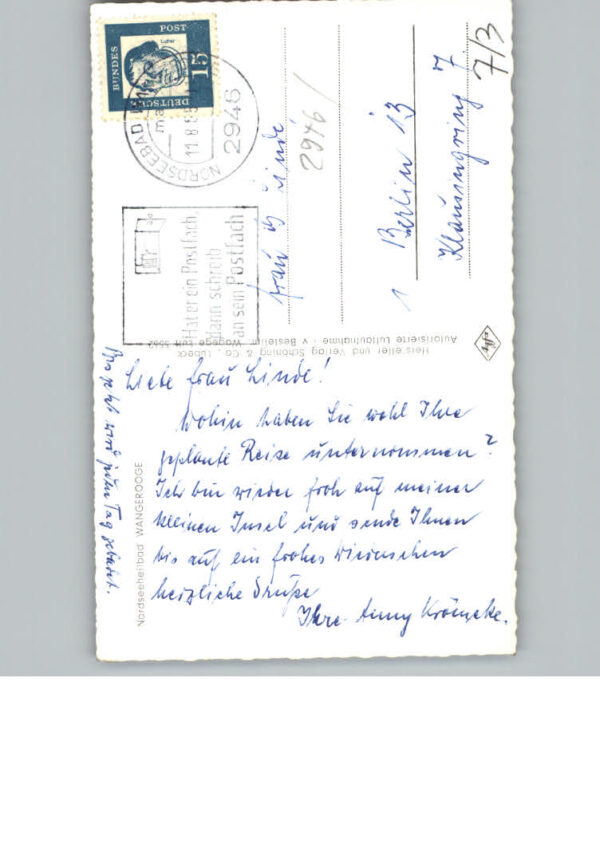 BUNDES
POST
DEUTSCHE
15
Luther
NORDSEEBAD
11.8.
2946
Hat er ein Postfach,
dann schreib
an sein Postfach
Frau G. Linde
2946/
1 Berlin 13
Klausingring 7
7/3
Hersteller und Verlag Schöning & Co., Lübeck
Autorisierte Luftaufnahme
Nordseeheilbad WANGEROOGE
Liebe Frau Linde!
Wohin haben Sie wohl Ihre
geplante Reise unternommen?
Ich bin wieder froh auf meiner
kleinen Insel und sende Ihnen
bis auf ein frohes Wiedersehen
herzliche Grüße
Ihre Anny
jeden Tag gebadet.